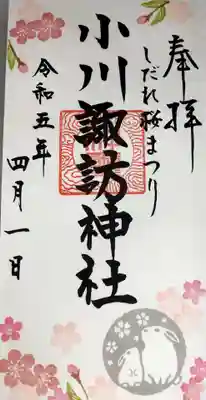 奉拝
しだれ桜まつり
小川諏訪神社
令和五年
四月一日